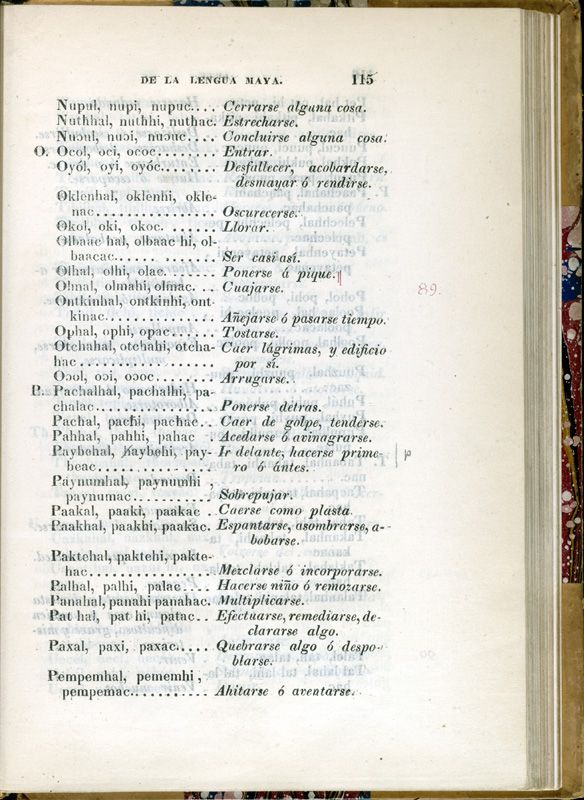 DE LA LENGUA MAYA. 115
Nupul, nupi, nupuc.... Cerrarse alguna cosa.
Nuthhal, nuthhi, nuthac. Estrecharse.
Nuɔul, nuɔi, nuɔuc.... Concluirse alguna cosa.
O. Ocol, oci, ococ........ Entrar.
Oyól, oyi, oyóc........ Desfallecer, acobardarse,
desmayar ó rendirse.
Oklenhal, oklenhi, okle-
nac............... Oscurecerse.
Okol, oki, okoc. ....... Llorar.
Olbaac hal, olbaac hi, ol-
baacac............. Ser casi así.
Olhal, olhi, olac....... Ponerse á pique.
Olmal, olmahi, olmac. .. Cuajarse.
Ontkinhal, ontkinhi, ont-
kinac............... Añejarse ó pasarse tiempo.
Ophal, ophi, opac...... Tostarse.
Otchahal, otchahi, otcha- Caer lágrimas, y edificio
hac ................ por sí.
Oɔol, oɔi, oɔoc........ Arrugarse.
P. Pachalhal, pachalhi, pa-
chalac.............. Ponerse detras.
Pachal, pachi, pachac.. Caer de golpe, tenderse.
Pahhal, pahhi, pahac .. Acedarse ó avinagrarse.
Paybehal, Kaybehi, pay- Ir delante, hacerse prime- p
beac............... ro ó ántes.
Paynumhal, paynumhi ,
paynumac.......... Sobrepujar.
Paakal, paaki, paakac .. Caerse como plasta.
Paakhal, paakhi, paakac. Espantarse, asombrarse, a-
bobarse.
Paktehal, paktehi, pakte-
hac................ Mezclarse ó incorporarse.
Palhal, palhi, palac.... Hacerse niño ó remozarse.
Panahal, panahi panahac. Multiplicarse.
Pat hal, pat hi, patac.. Efectuarse, remediarse, de-
clararse algo.
Paxal, paxi, paxac..... Quebrarse algo ó despo-
blarse.
Pempemhal, pememhi ,
pempemac.......... Ahitarse ó aventarse.
89.